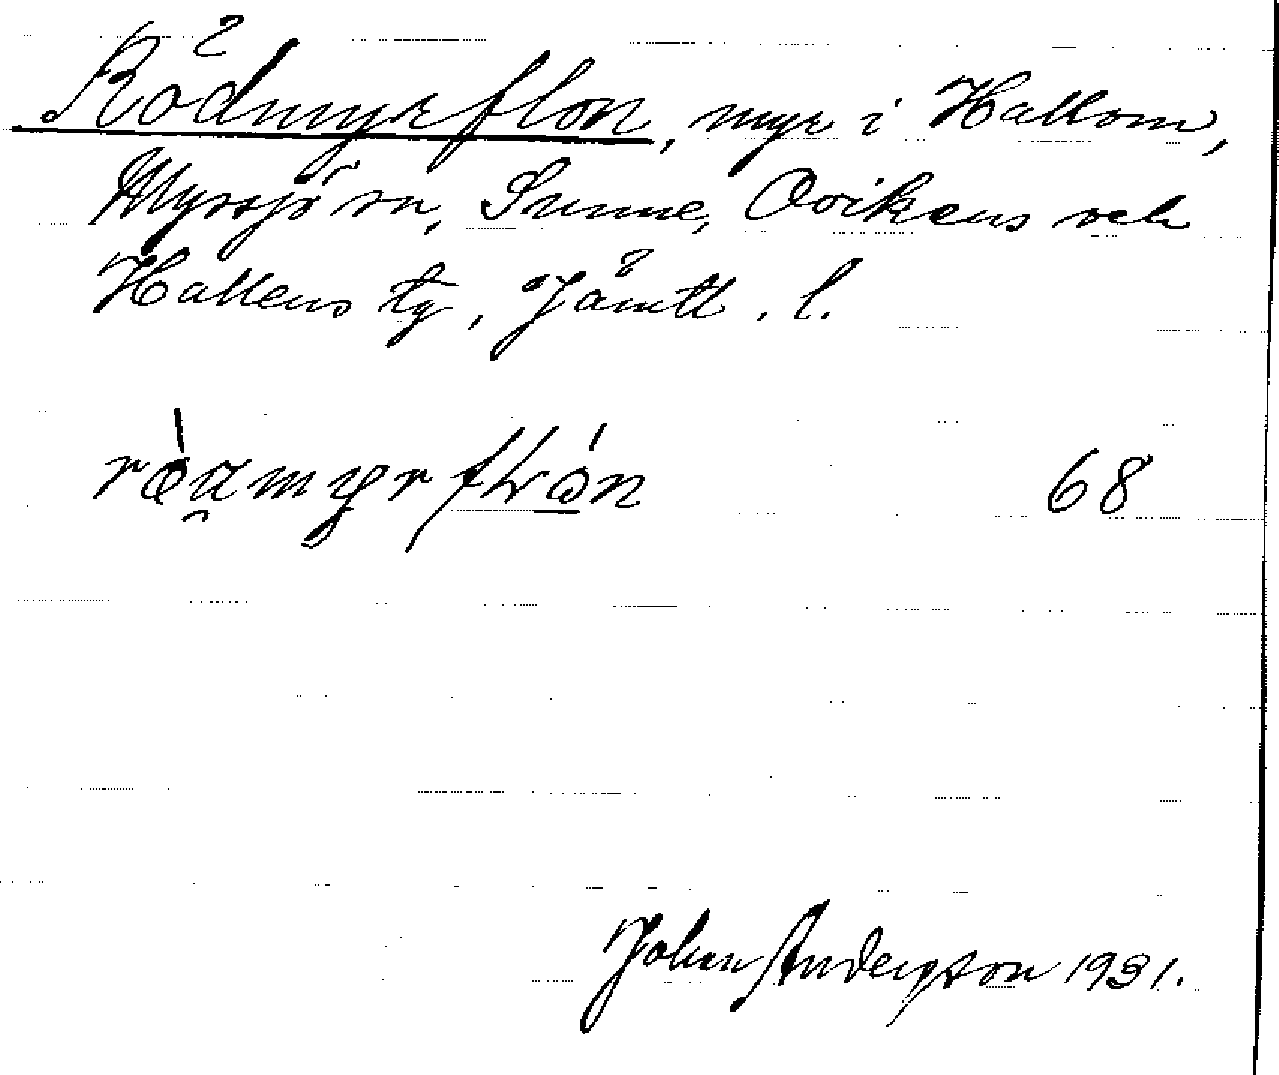 Rödmyrflon, myr i Hallom,
Myssjö sn, Sunne, Ovikens och
Hallens tg, Jämtl. l.
68
Johan Andersson 1931.